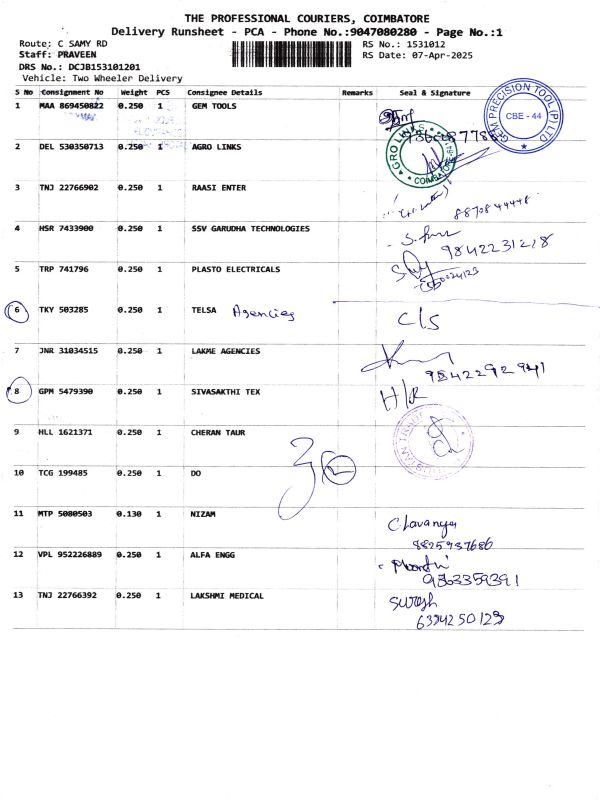 THE PROFESSIONAL COURIERS, COIMBATORE
Delivery Runsheet - PCA - Phone No.:9047080280 - Page No.:1
Route: C SAMY RD RS No.: 1531012
Staff: PRAVEEN RS Date: 07-Apr-2025
DRS No.: DCJB153101201
Vehicle: Two Wheeler Delivery
S No Consignment No Weight PCS Consignee Details Remarks Seal & Signature
1 MAA 869450822 0.250 1 GEM TOOLS
GEM PRECISION TOOL (P) LTD
CBE - 44
2 DEL 530350713 0.250 1 AGRO LINKS
GRO LINKS
3 TNJ 22766902 0.250 1 RAASI ENTER
8870844448
4 HSR 7433900 0.250 1 SSV GARUDHA TECHNOLOGIES
9842231218
5 TRP 741796 0.250 1 PLASTO ELECTRICALS
6 TKY 503285 0.250 1 TELSA Agencies C/S
7 JNR 31034515 0.250 1 LAKME AGENCIES
9842292941
8 GPM 5479390 0.250 1 SIVASAKTHI TEX H/R
9 HLL 1621371 0.250 1 CHERAN TAUR
10 TCG 199485 0.250 1 DO
11 MTP 5080503 0.130 1 NIZAM C.Lavanya
8825937686
12 VPL 952226889 0.250 1 ALFA ENGG
9363359391
13 TNJ 22766392 0.250 1 LAKSHMI MEDICAL Suresh
6394250129